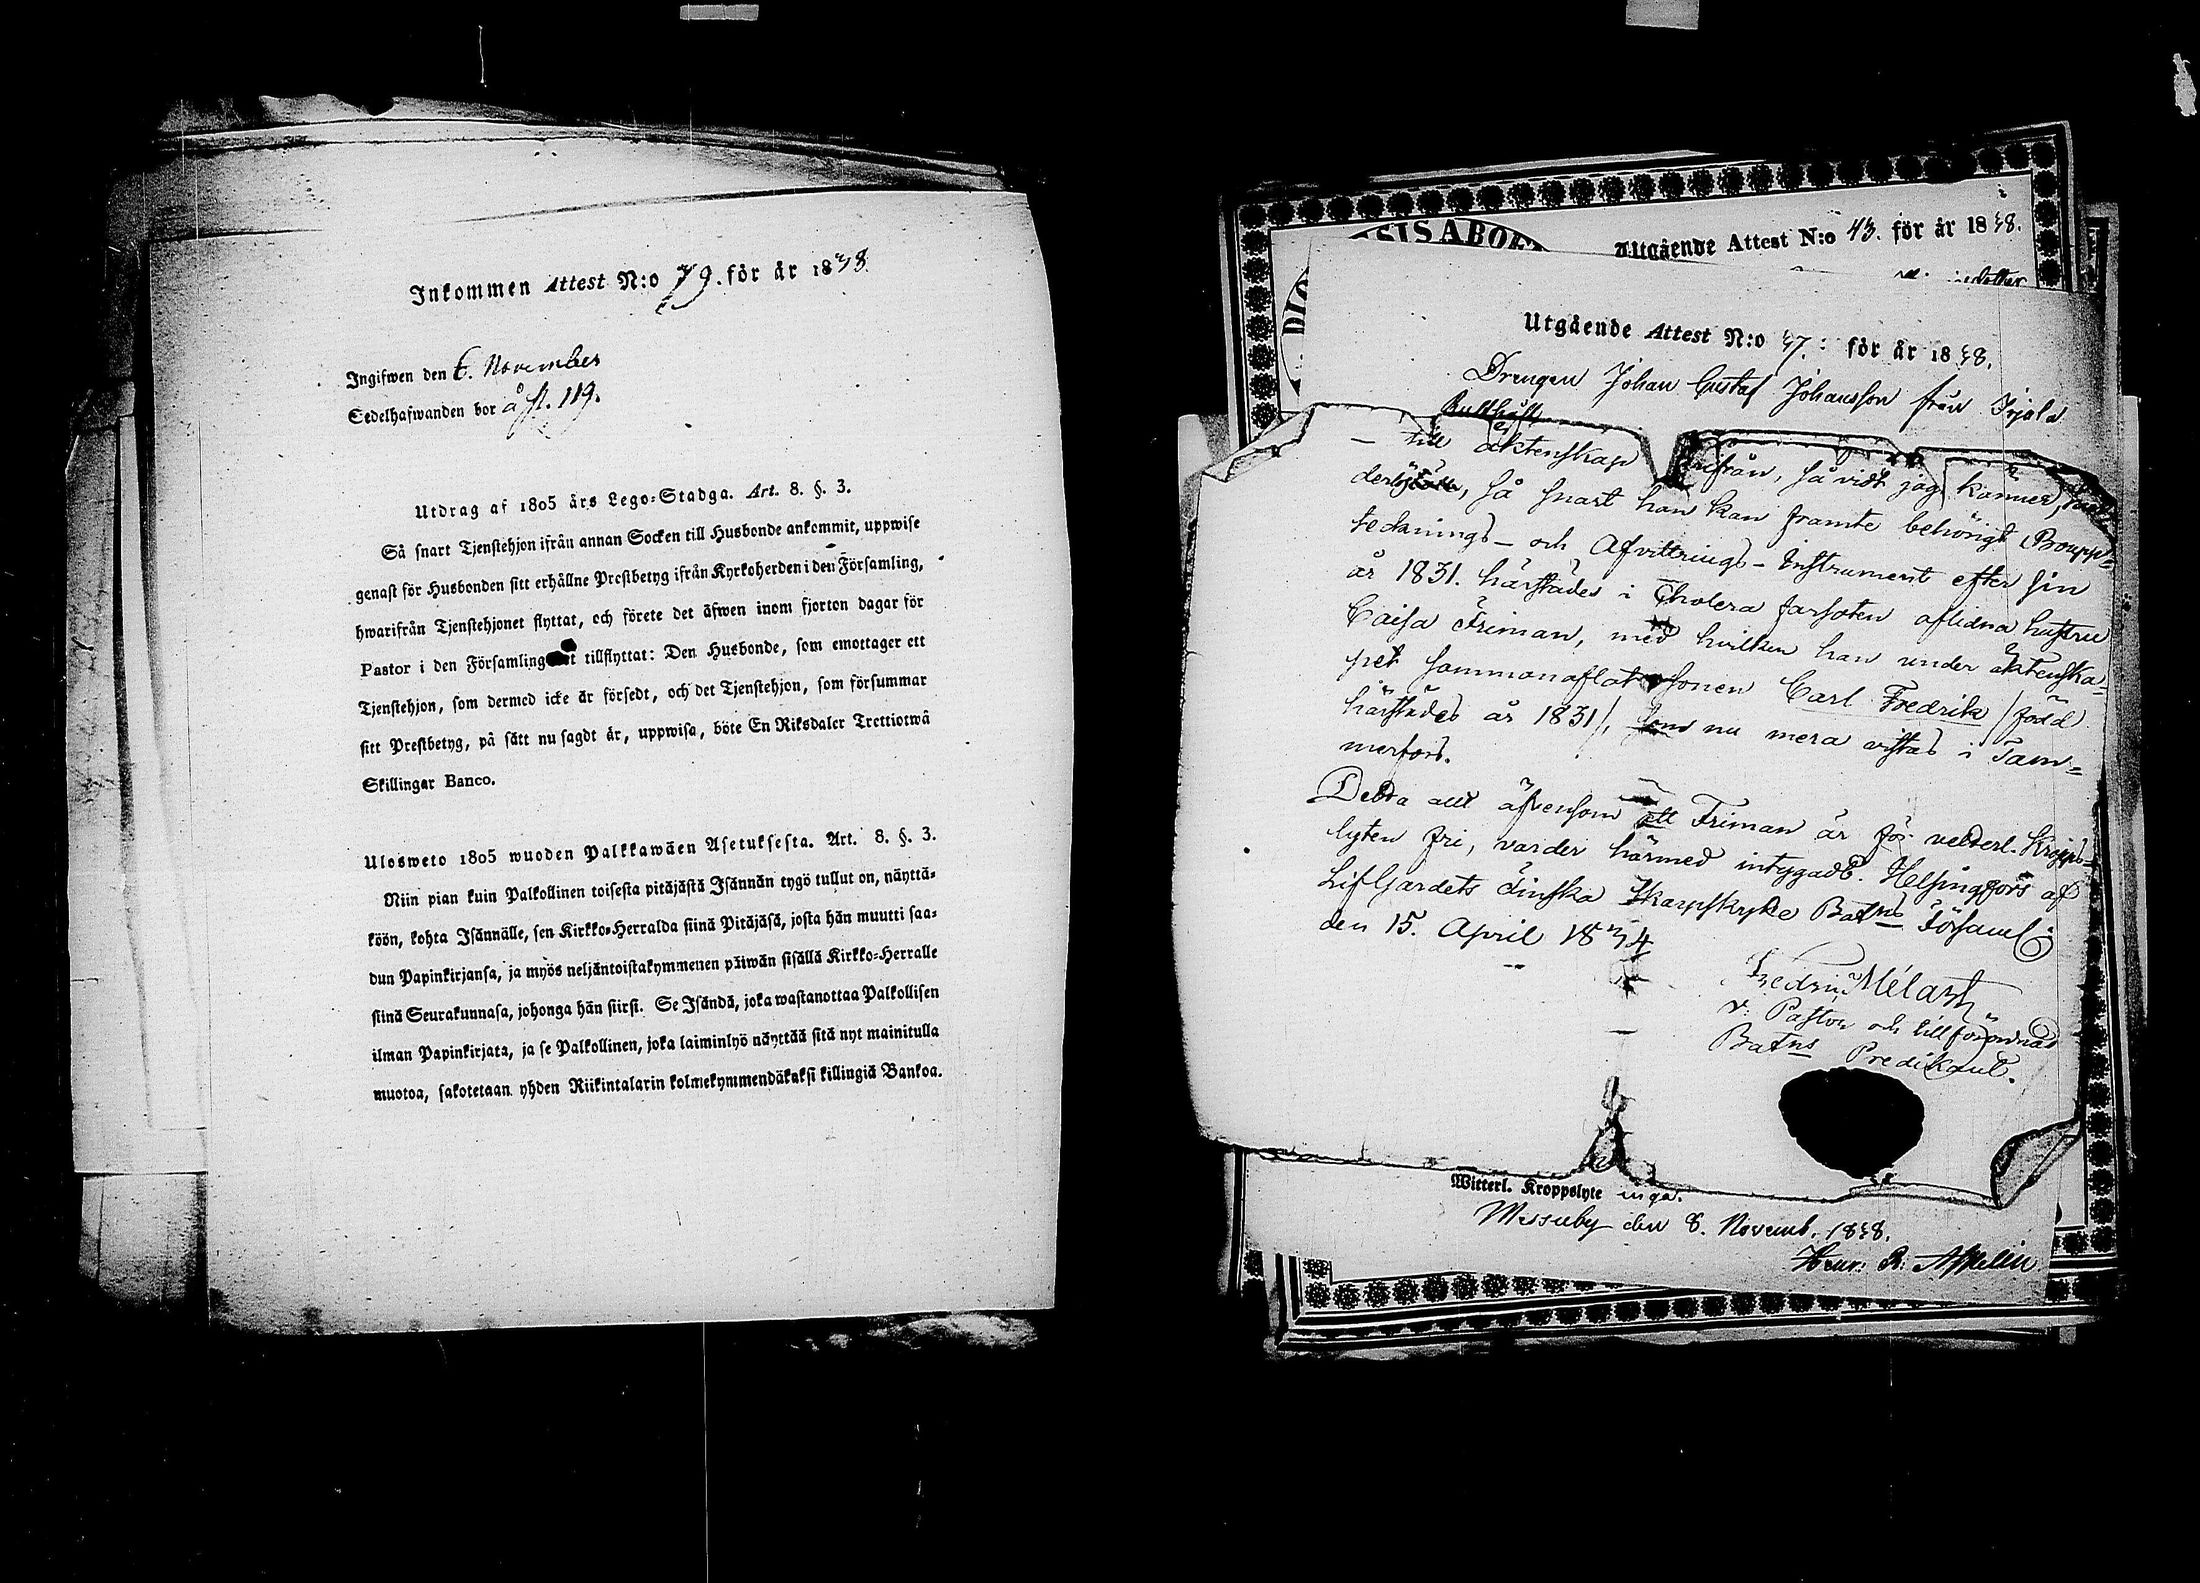 Inkommen Attest N:o 79. för år 1838.
Ingifwen den 6. November
Sedelhafwanden bor å fl. 119.
Utdrag af 1805 års Lego-Stadga. Art. 8. §. 3.
Så snart Tjenstehjon ifrån annan Socken till Husbonde ankommit, uppwise
genast för Husbonden sitt erhållne Prestbetyg ifrån Kyrkoherden i den Församling,
hwarifrån Tjenstehjonet flyttat, och förete det äfwen inom fjorton dagar för
Pastor i den Församling det tillflyttat: Den Husbonde, som emottager ett
Tjenstehjon, som dermed icke är försedt, och det Tjenstehjon, som försummar
sitt Prestbetyg, på sätt nu sagdt är, uppwisa, böte En Riksdaler Trettiotwå
Skillingar Banco.
Ulosweto 1805 wuoden Palkkawäen Asetuksesta. Art. 8. §. 3.
Niin pian kuin Palkollinen toisesta pitäjästä Isännän tygö tullut on, näyttä-
köön, kohta Isännälle, sen Kirkko-Herralda siinä Pitäjäsä, josta hän muutti saa-
dun Papinkirjansa, ja myös neljäntoistakymmenen päiwän sisällä Kirkko-Herralle
siinä Seurakunnasa, johonga hän siirsi. Se Isändä, joka wastanottaa Palkollisen
ilman Papinkirjata, ja se Palkollinen, joka laiminlyö näyttää sitä nyt mainitulla
muotoa, sakotetaan yhden Riikintalarin kolmekymmendäkaksi killingiä Bankoa.
Utgående Attest N:o 43. för år 1838.
Utgående Attest N:o 47. för år 1838.
Drengen Johan Gustaf Johansson från Irjala
Rusthåll
– till äktenskap härifrån, så vidt jag känner,
så snart han kan framte behörigt Boupp-
tecknings- och Afvittrings-Instrument efter sin
år 1831. härstädes i Cholera farsoten aflidna hustru
Caisa Friman, med hvilken han under äktenska-
pet sammanaflat sonen Carl Fredrik /född
härstädes år 1831/, som nu mera vistas i Tam-
merfors.
Detta allt äfvensom att Friman är för vetterl. Kropps-
lyten fri, varder härmed intygadt. Helsingfors af
Lif Gardets Finska Skarpskytte Batns Församl:
den 15. April 1834
Fredric Mélart
v. Pastor och tillförordnad
Batns Predikant.
Witterl. Kroppslyte inga.
Messuby den 8. Novemb. 1838.
Henr. R. Aspelin